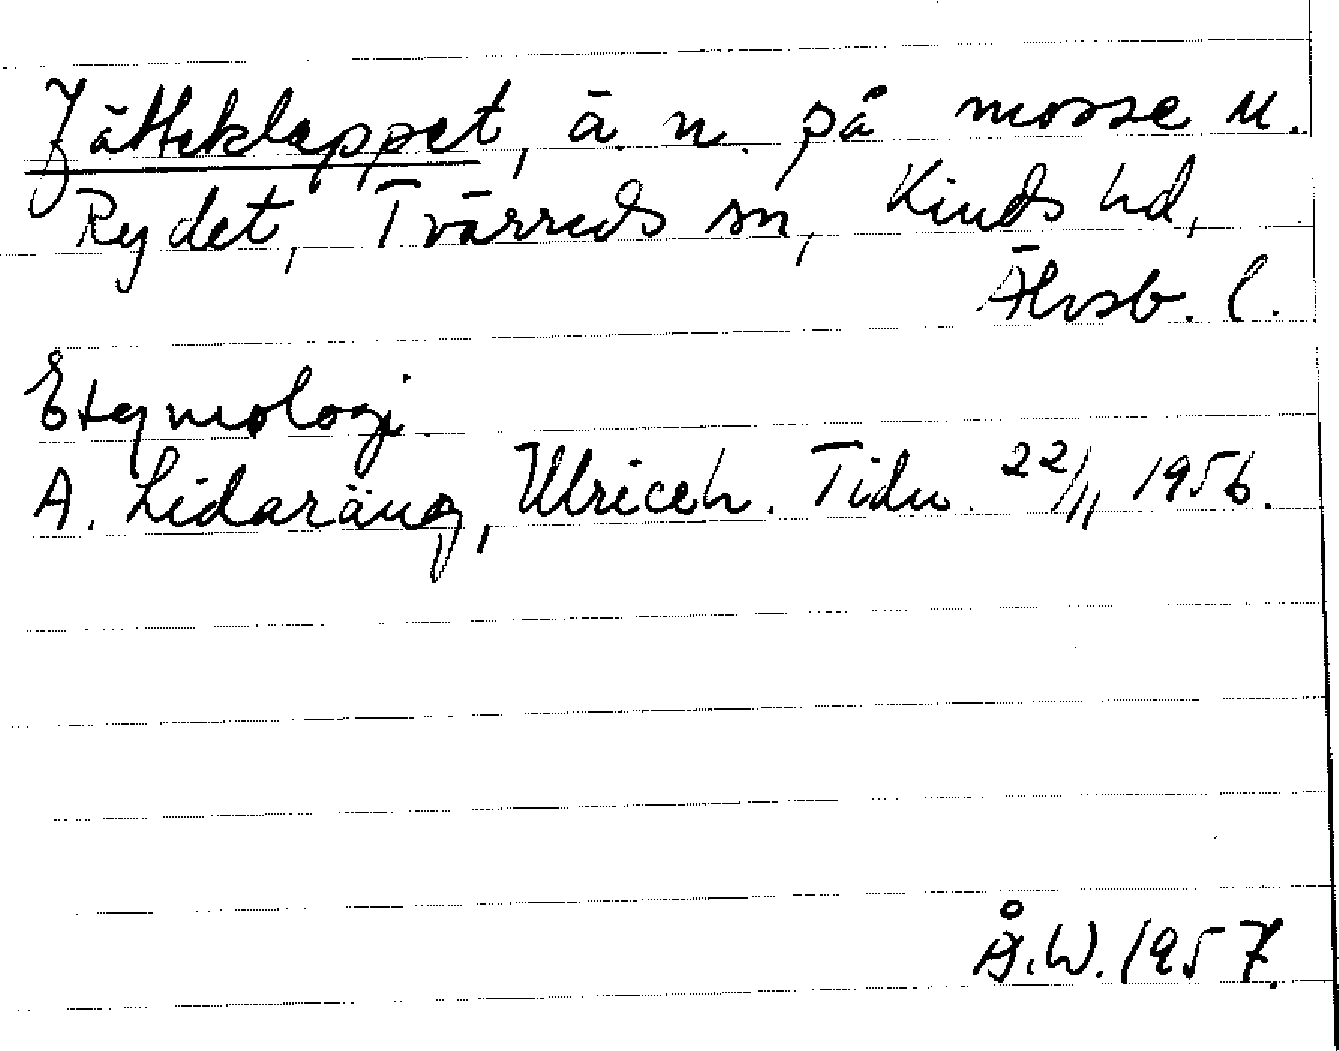 Jätteklappet, ä. n. på mosse u.
Rydet, Tvärreds sn, Kinds hd,
Älvsb. l.
Etymologi.
A. Lidaräng, Ulriceh. Tidn. 22/11 1956.
Å.W. 1957.